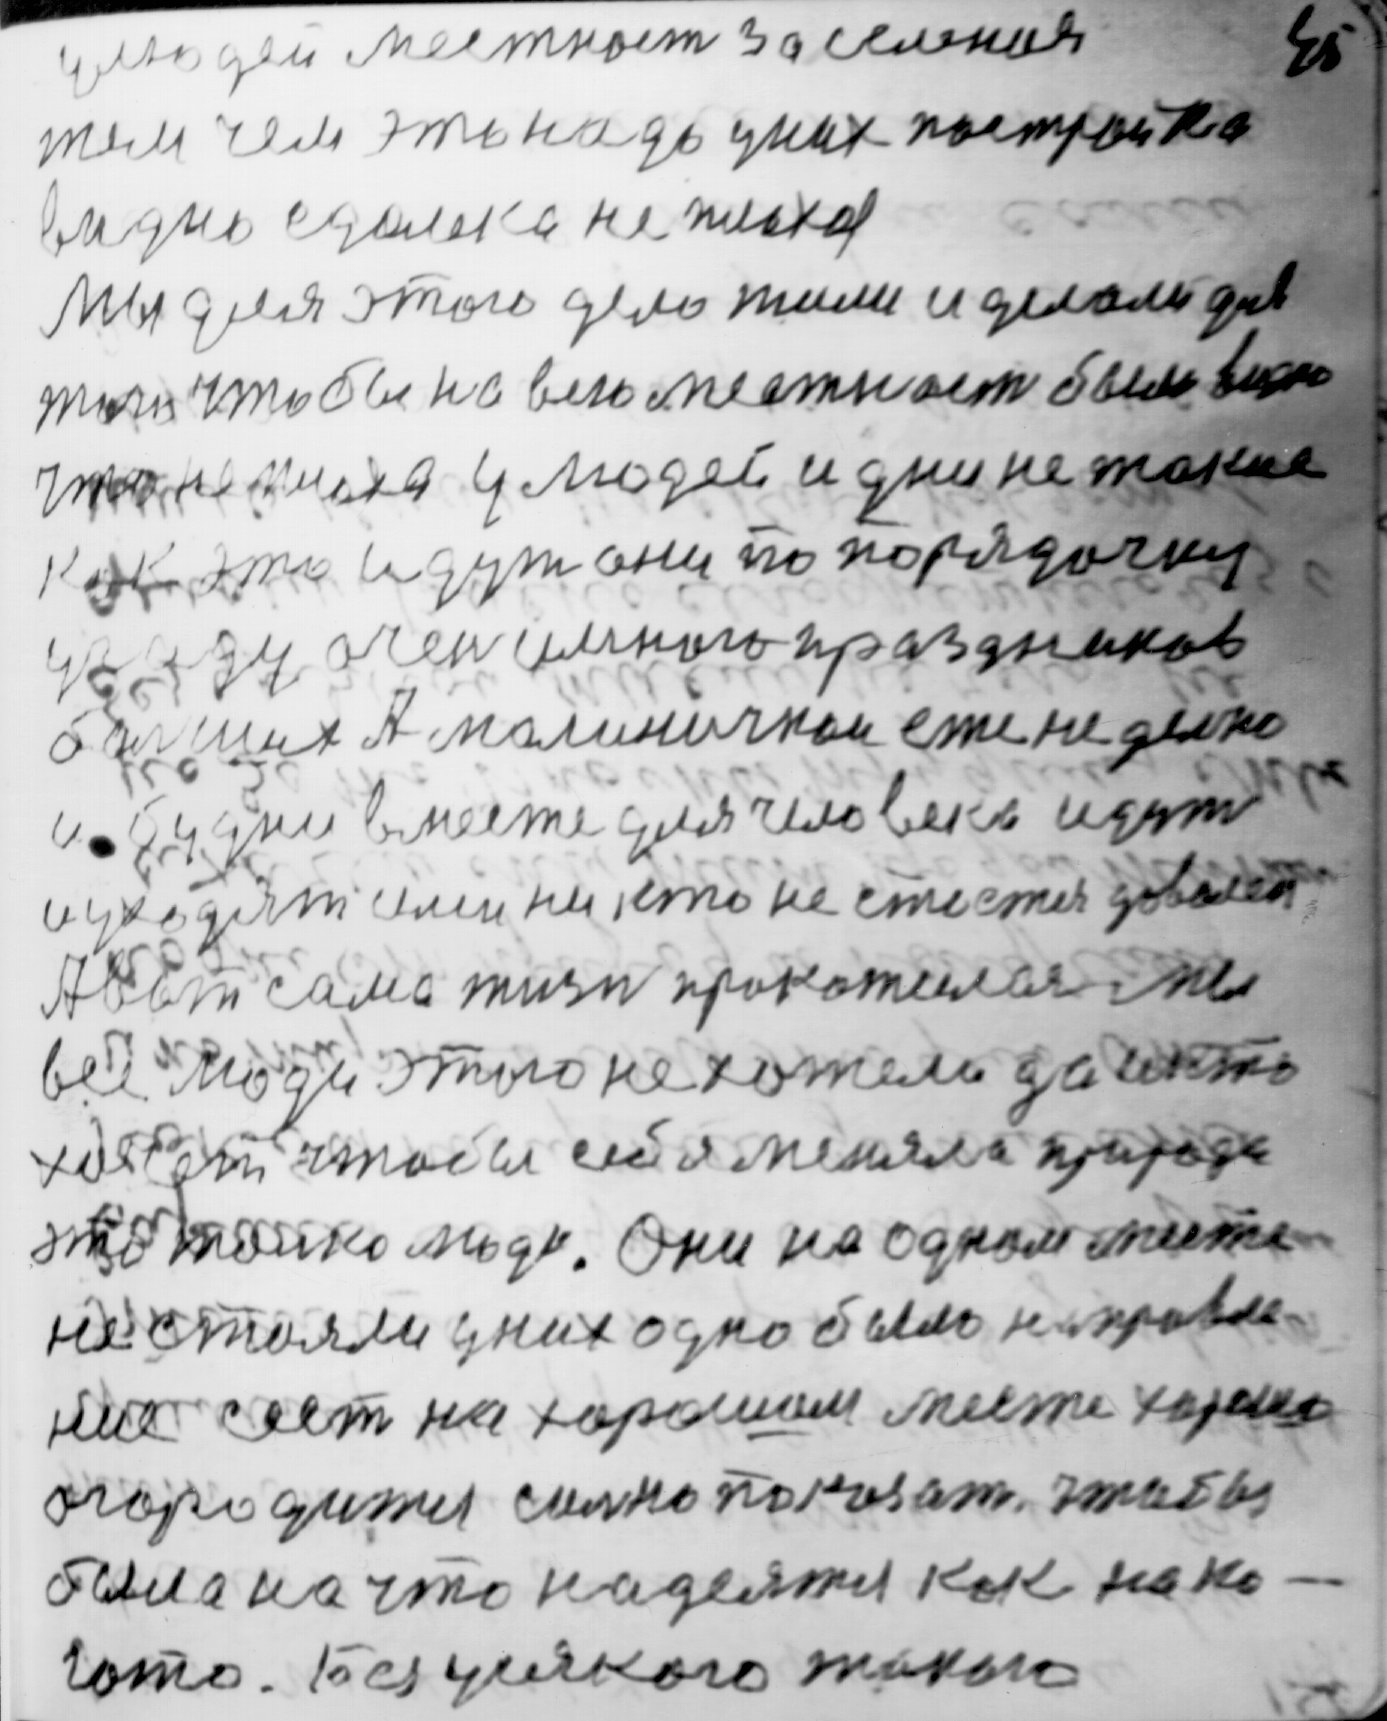 45
улюдей местност заселеная
тем чем этонадо уних пастройка
видно сдалека не плохая
Мы для этого дело жили и делали для
того чтобы на всю местност было видно
что не плоха у людей и дни не такие
как это идут они по порядочку
угоду очен имного праздников
болших А малиничкои еженеделно
и будни вместе для человека идут
иуходят ими никто не стостся доволен
А вот сама жизн прокотилася мы
все люди этого не хотели да и кто
хочет чтобы себя меняла природа
это толко люди. Они на одном месте
не стояли уних одно было направле-
ние сест на хорошом месте хорошо
огородитя силно показат. чтобы
была на что надеятя как нако —
гото. Без усякого такого